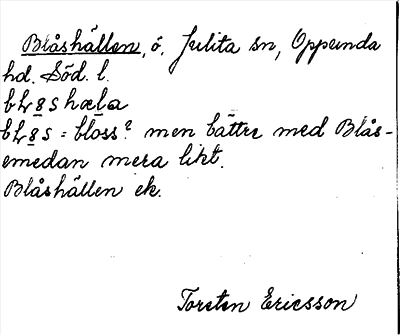 Blåshällen, ö. Julita sn, Oppunda
hd. Söd. l.
blo̲s hæla
blo̲s = bloss? men bättre med Blås-
emedan mera likt.
Blåshällen ek.
Torsten Ericsson